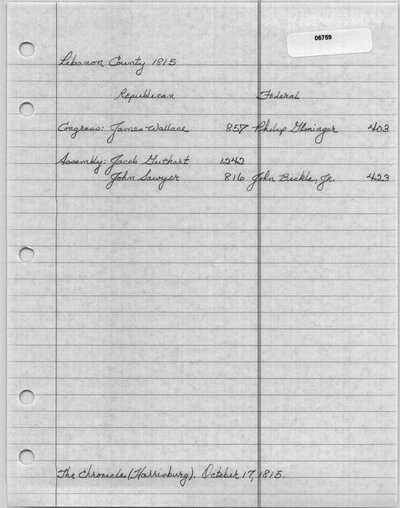 06759
Lebanon County 1815
Republican Federal
Congress: James Wallace 857 Philip Gloninger 403
Assembly: Jacob Guthart 1242
John Sawyer 816 John Bickle, Jr. 423
The Chronicle (Harrisburg). October 17, 1815.